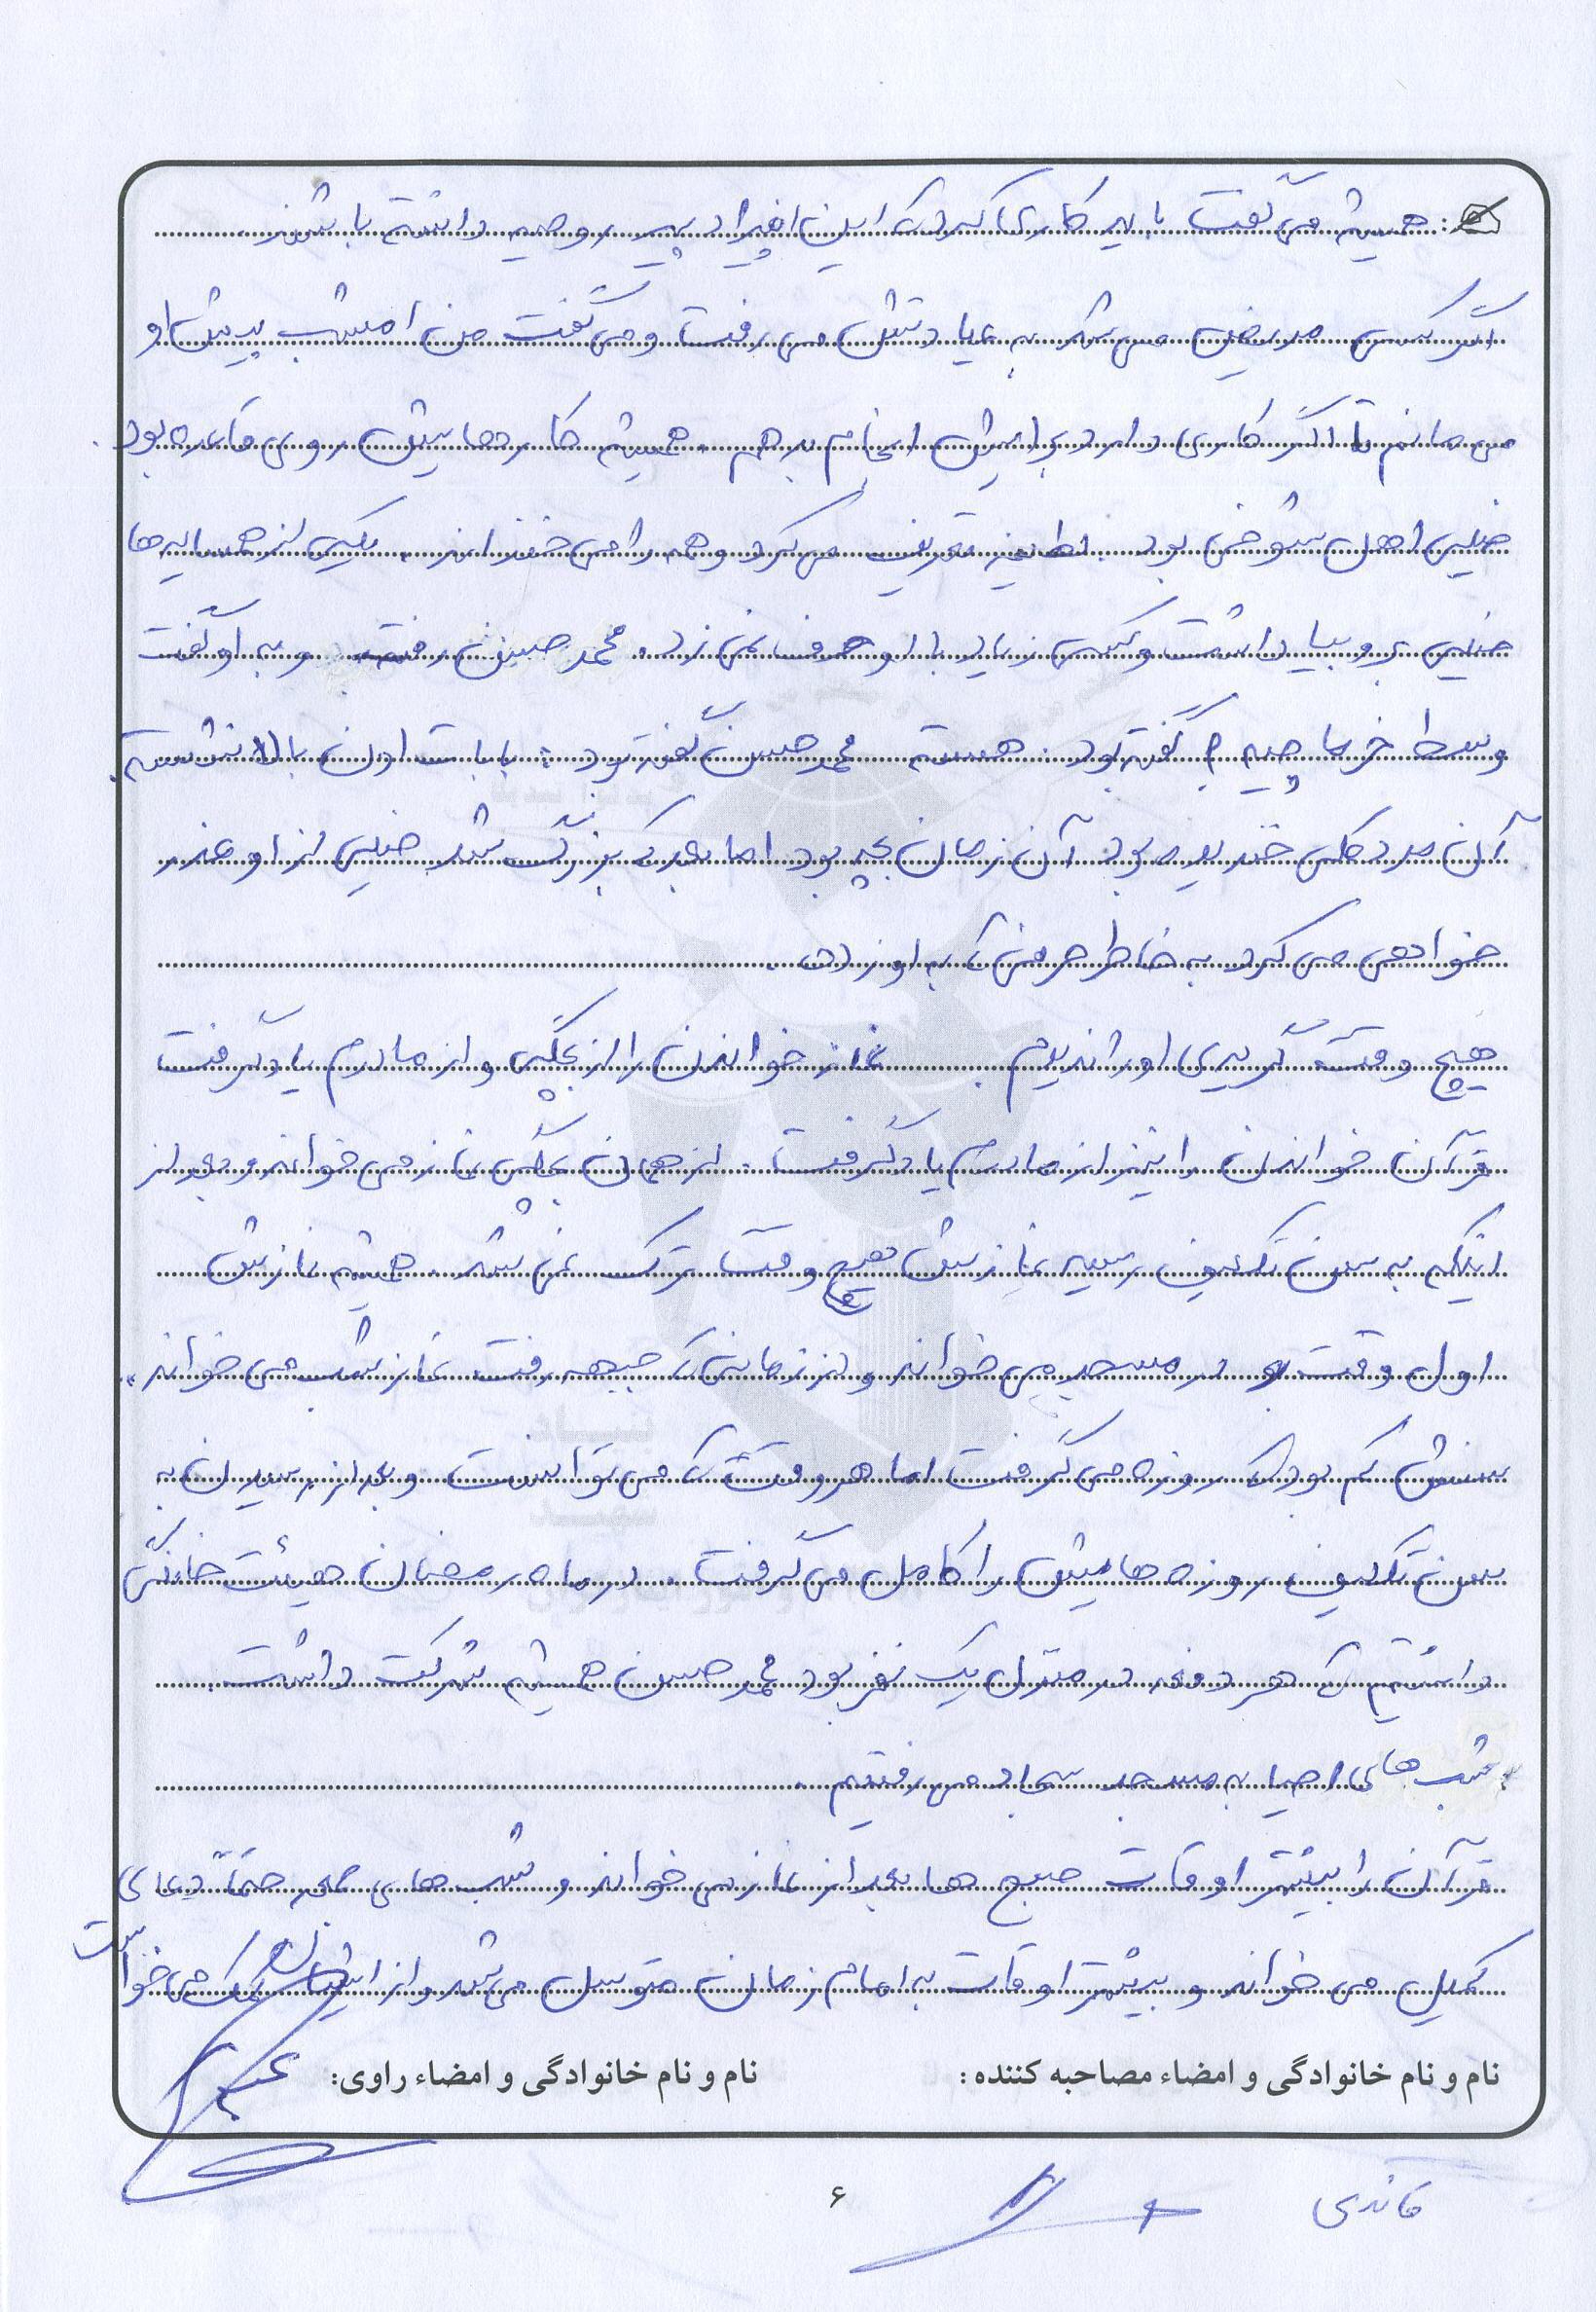 همیشه می گفت باید کاری کرد که این افراد پیر روحیه داشته باشند.
اگر کسی مریض می شد به عیادتش می رفت و می گفت من امشب پیش او
می مانم تا اگر کاری دارد برایش انجام بدهم. همیشه کارهایش روی قاعده بود.
خیلی اهل شوخی بود. لطیفه تعریف می کرد و همه را می خنداند. یکی از همسایه ها
خیلی برو بیا داشت و کسی زیاد با او حرف نمی زد. محمدحسین رفت و به او گفت
وسط خرما چیه؟ گفته بود: هسته محمدحسین گفته بود: بابات اون بالا نشسته.
آن مرد کلی خندیده بود آن زمان بچه بود اما بعد که بزرگ شد خیلی از او عذر
خواهی می کرد به خاطر حرفی که به او زده.
هیچ وقت گریه ی او را ندیدم. نماز خواندن را از بچگی و از مادرم یاد گرفت
قرآن خواندن را نیز از مادرم یاد گرفت. از همان بچگی نماز می خواند و بعد از
اینکه به سن تکلیف رسید نمازش هیچ وقت ترک نمی شد. همیشه نمازش
اول وقت بود در مسجد می خواند و از زمانی که جبهه رفت نماز شب می خواند.
سنش کم بود که روزه می گرفت اما هر وقت که می توانست و بعد از رسیدن به
سن تکلیف روزه هایش را کامل می گرفت. در ماه رمضان هیئت خانگی
داشتیم که هر دفعه در منزل یک نفر بود محمدحسین همیشه شرکت داشت.
شب های احیا به مسجد سجاد می رفتیم.
قرآن را بیشتر اوقات صبح ها بعد از نماز می خواند و شب های جمعه حتماً دعای
کمیل می خواند و بیشتر اوقات به امام زمان متوسل می شد و از ایشان کمک می خواست
نام و نام خانوادگی و امضاء مصاحبه کننده: نام و نام خانوادگی و امضاء راوی:
۶